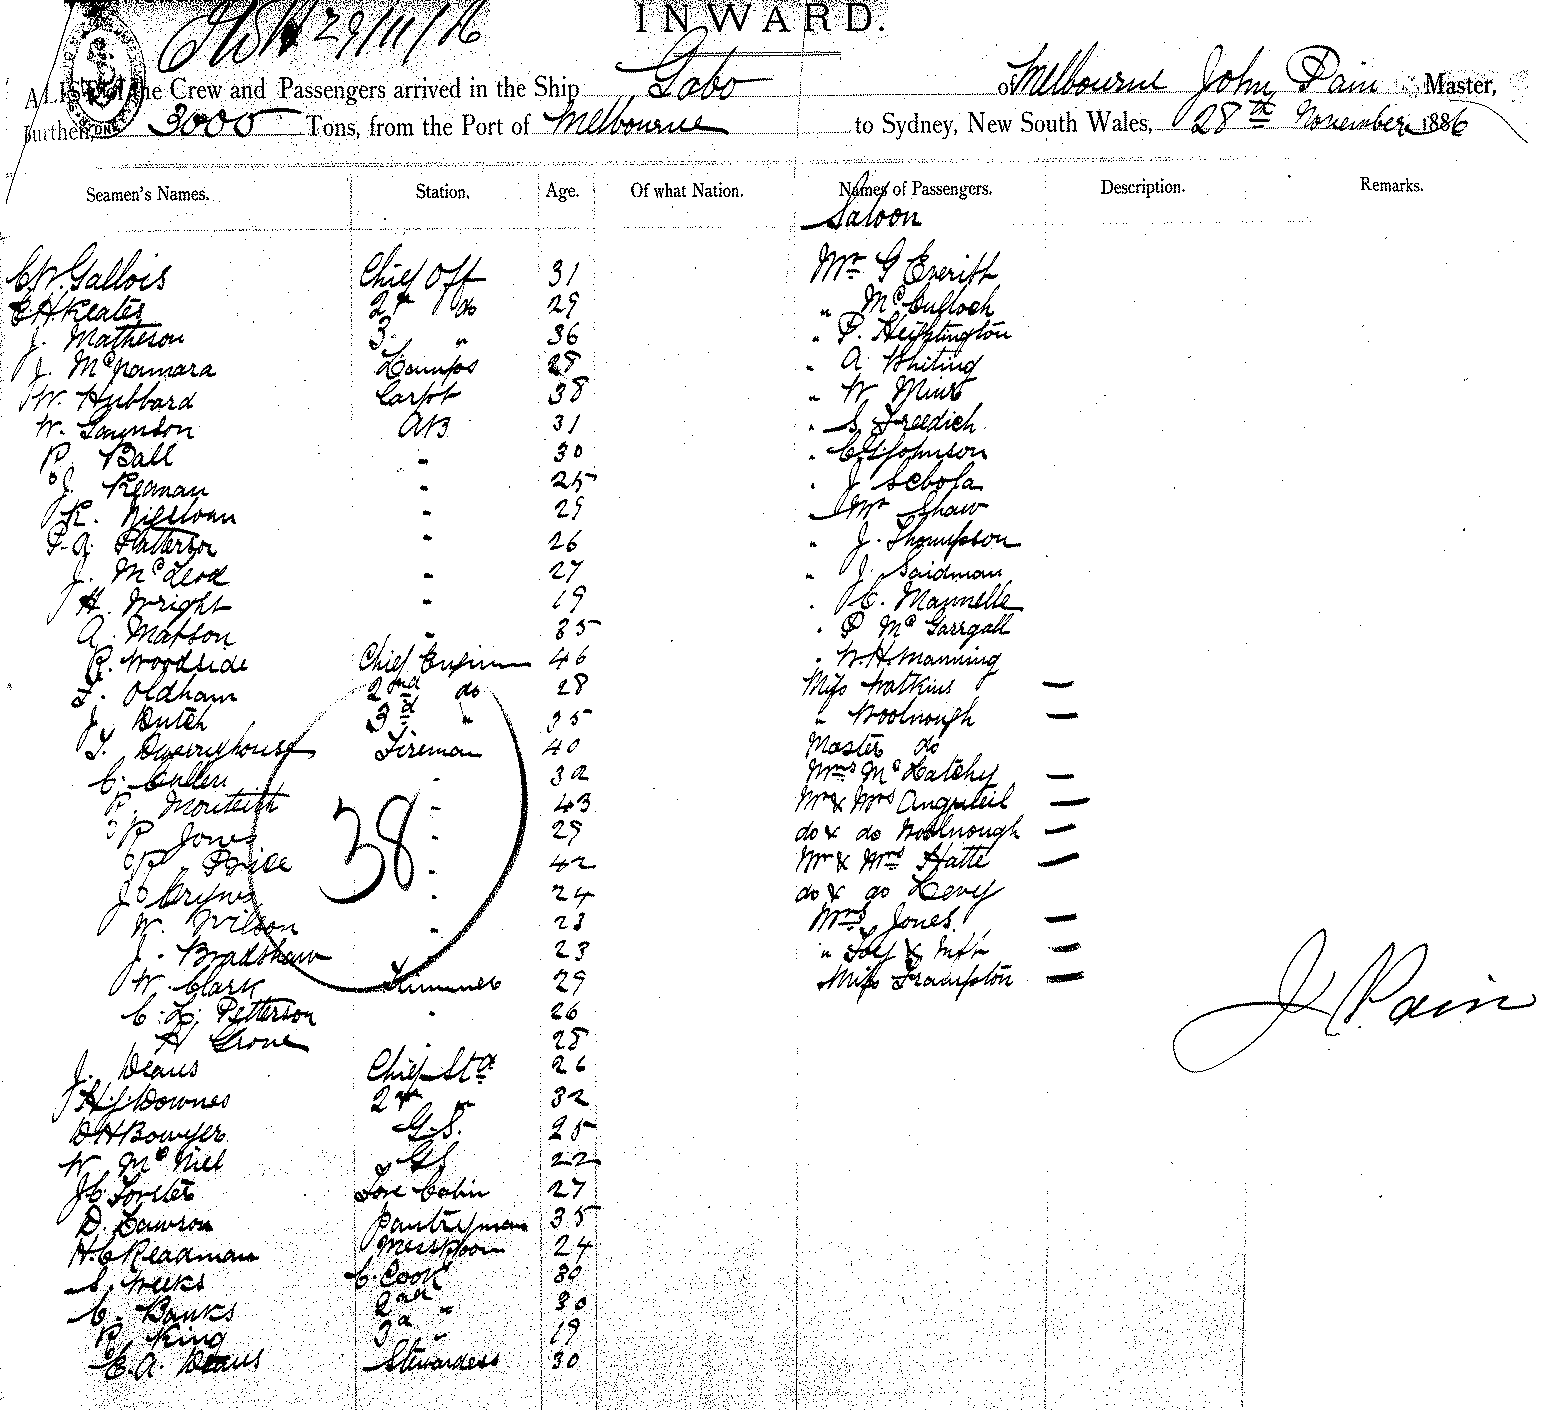 29/11/86
INWARD.
A LIST of the Crew and Passengers arrived in the Ship Gabo of Melbourne John Pain Master,
Burthen, 3000 Tons, from the Port of Melbourne to Sydney, New South Wales, 28th November 1886
Seamen's Names. Station. Age. Of what Nation. Names of Passengers. Description. Remarks.
Saloon
C W. Gallois Chief Off 31 Mr G Everitt
E H Keates 2nd do 29 " McCulloch
J. Matheson 3 " 36 " P. Heightington
J. McNamara Lamps 28 " A Whiting
W. Hubbard Carpt 38 " W
W. AB 31 " S
P. Ball " 30 " Johnson
J. " 25 " J
K. " 29 " Mr Shaw
P. A. Patterson " 26 " J. Thompson
J. McLeod " 27 " J. Saidman
H. Wright " 19 " C. Mannelle
A. Matson " 35 " P McGarrgall
R. Woodside Chief 46 " W. H. Manning
F. Oldham 2nd do 28 Miss Watkins —
J. Dutch 3rd " 35 " Woolnough —
T. Fireman 40 Master do
C. Cullen " 32 Mrs McLatchy —
P. Monteith " 43 Mr & Mrs —
R Jones " 29 do & do Woolnough —
R " Price " 42 Mr & Mrs Hatte —
J " 24 do & do Levy
W. Wilson " 23 Mrs Jones. —
J. Bradshaw " 23 " & Inft —
W. Clark Trimmer 29 Miss Frampton —
C. L. Petterson " 26
H Grove 28
38
J Pain
J. Deans Chief Std 26
H J Downes 2nd " 32
D H Bowyer G. S. 25
W McNiel " GS 22
J C Forster Fore Cabin 27
D. Lawson Pantryman 35
H. C Readman Messroom 24
S. Weeks C. Cook 30
C. Banks 2nd " 30
R. King 3d " 19
E. A. Deans Stewardess 30